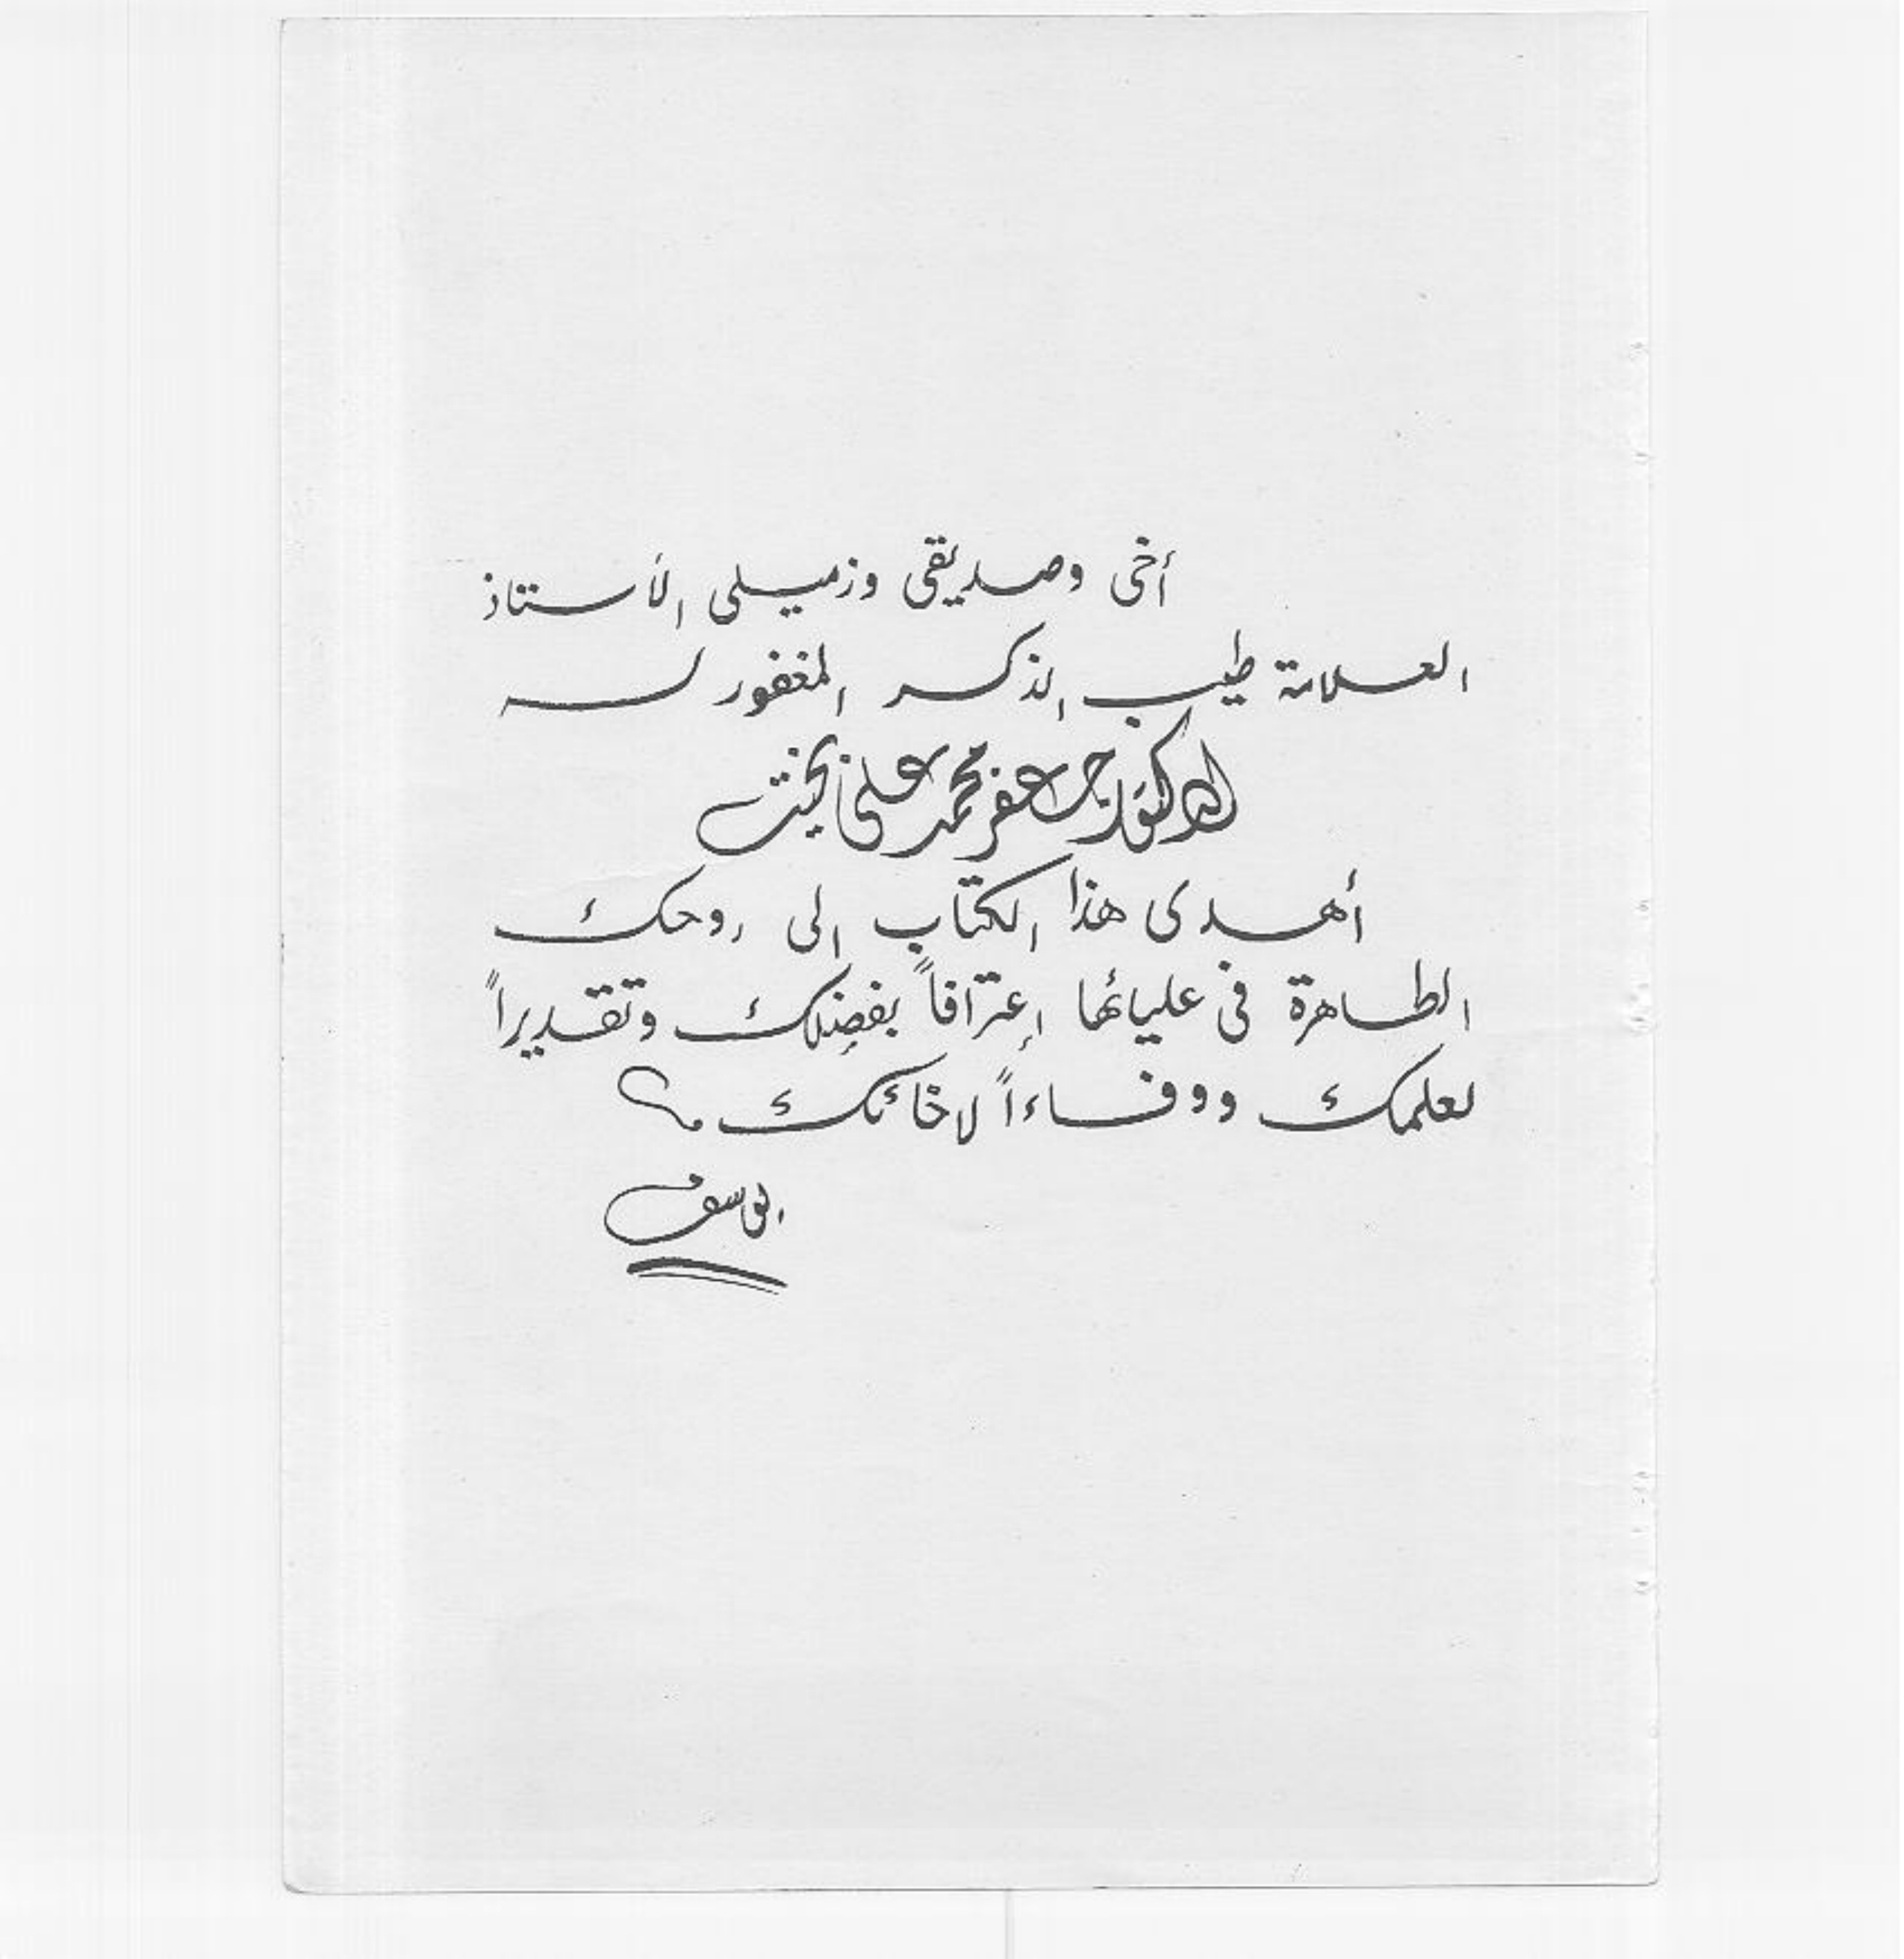 أخى وصديقى وزميلى الأستاذ
العلامة طيب الذكر المغفور له
الدكتور جعفر محمد على بخيت
أهدى هذا الكتاب الى روحك
الطاهرة فى عليائها إعترافاً بفضلك وتقديراً
لعلمك ووفاءاً لاخائك